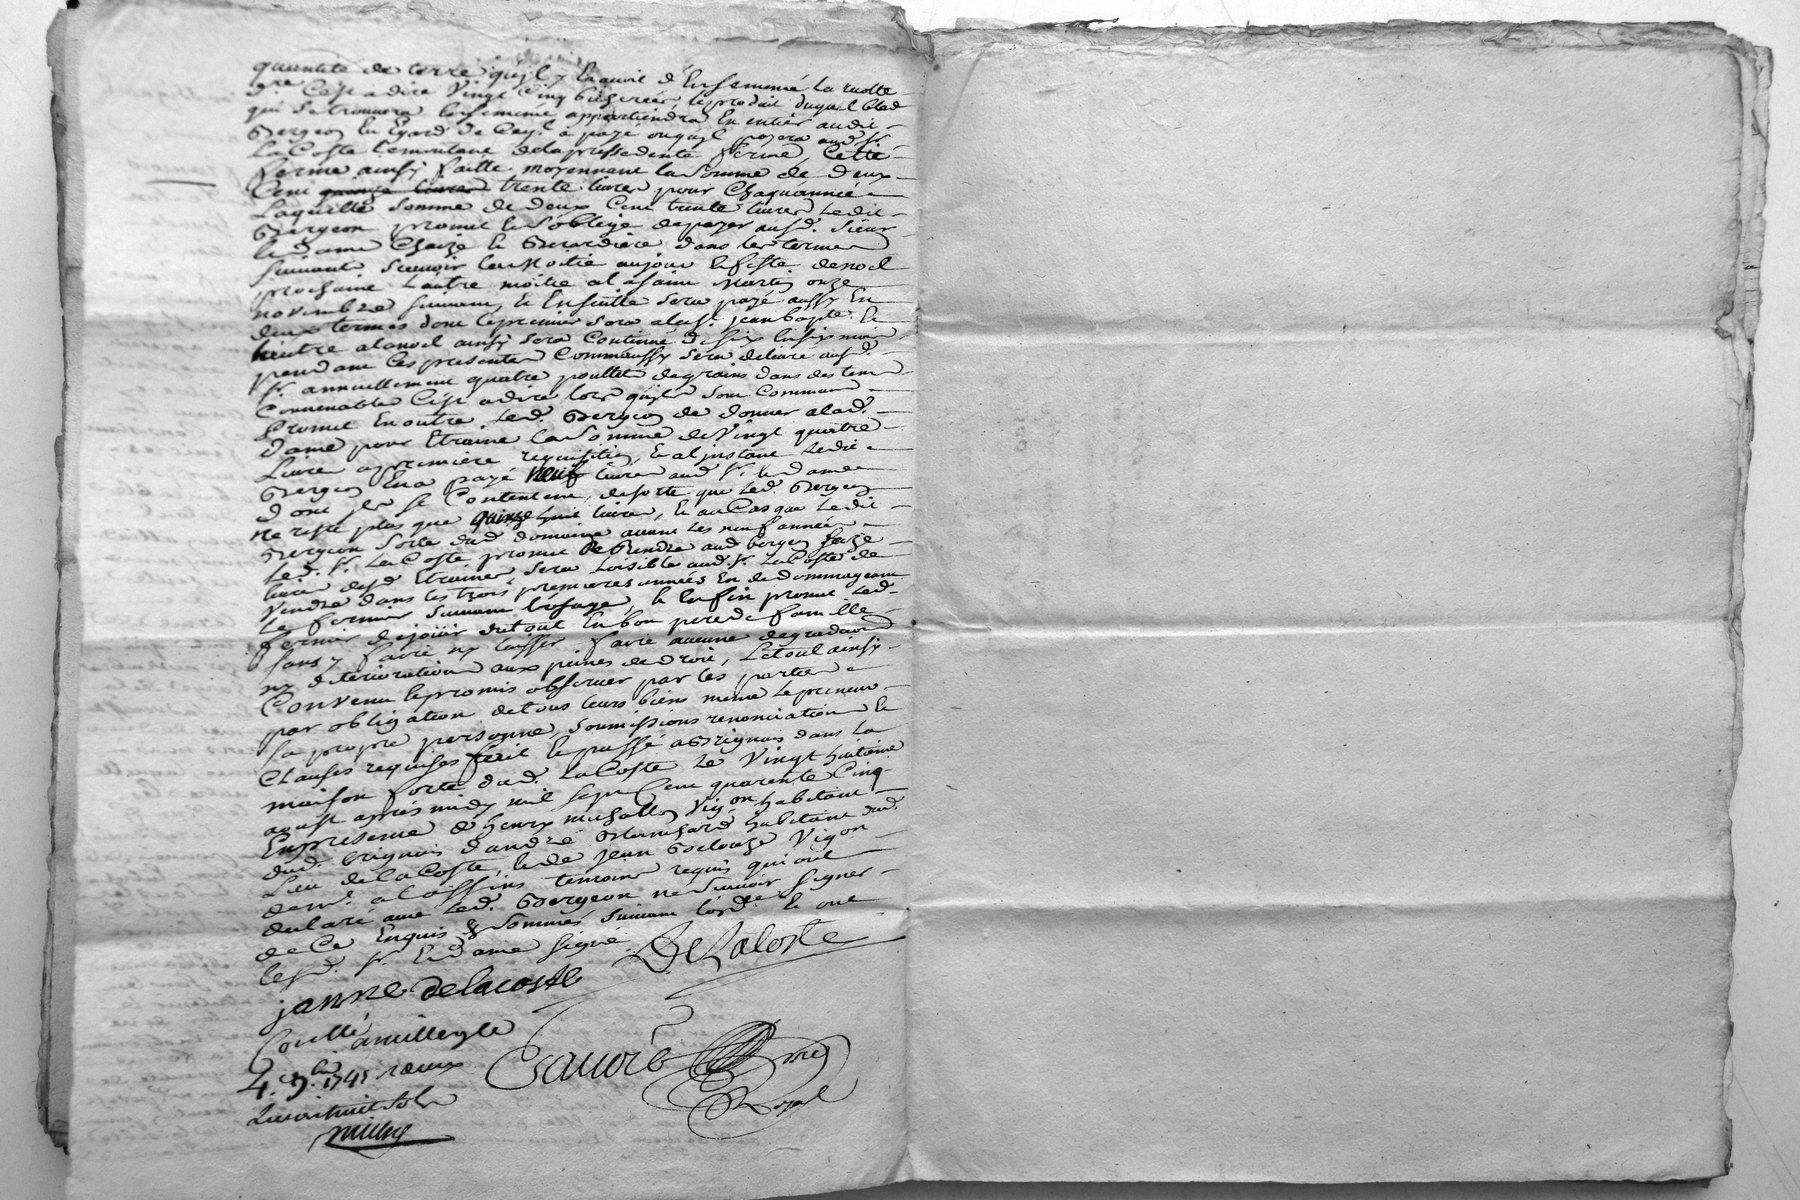 quantité de terre quil y en avoit d'Ensemencé la recolte
dre C'est a dire Vingt Cinq bicherées, le produit duquel bled
qui se trouvera Ensemencé appartiendra En entier audit
Bergeon En Egard de Ce qu'il a payé ou quil payera aud. Sr.
La Coste le montant de la pressedente ferme, Cette
ferme ainsy faitte moyennant la Somme de Deux
Cent quinze livres trente livres pour Chaquannée
Laquelle Somme de Deux Cent trente livres Ledit
Bergeon promet & s'oblige de payer ausd. Sieur
& Dame Chaize & Girardiere dans les termes
suivant Scavoir la Moitié aujour & feste de noel
prochaine L'autre moitie a la saint Martin onze
novembre suivant, & Ensuitte sera payé aussy En
deux termes dont le premier sera a la st. jean bapte. &
lautre a la noel ainsy sera Continué de six En six mois
pendant Ces presentes Comme aussy sera delivré ausd.
Sr. annuellement quatre poullets de grains dans des tems
Convenable C'est a dire lors quils sont Commun
Promet En outre Led. Bergeon de donner a lad.
Dame pour Etraine la Somme de Vingt quatre
Livre a premiere requisition, & a l'instant Ledit
Bergeon En a payé neuf livre aud. Sr. & Dame
dont jls se Contentent, de sorte que Led. Bergeon
ne reste plus que quinze livres, & au Cas que Ledit
Bergeon sorte dud. domaine avant Les neuf années
Led. Sr. La Coste promet de Rendre aud. bergeon seize
livre desd. Etraines, sera Loisible aud. Sr. La Coste de
Vendre dans les trois premieres années En dedommageant
Le fermier suivant l'usage, & Enfin promet Led.
fermier de jouir du tout En bon pere de famille
sans y faire ny laisser faire aucune degradation
ny deterioration aux peines de droit, Le tout ainsy
Convenu & promis observer par les parties
par obligation de tous leurs biens meme le preneur
sa propre personne, soumissions renonciation &
Clauses requises fait & passé a Brignais dans la
maison forte dud. La Coste Le Vingt huitieme
aoust apres midy mil sept Cent quarente Cinq
En presence d'henry michallon Vigon habitant
dud. brignais d'andré Blanchard habitant dud.
Lieu de la Coste, & de jean Vigon
demt. a temoins requis qui ont
declaré avec Led. Bergeon ne Scavoir signer
de Ce Enquis & Sommés suivant l'ordce. & ont
lesd. Sr. & Dame signé
De Lacoste
janne delacoste
Conllé a milleryle
4. 7bre 1745 receu
Livre huit sols
Royal